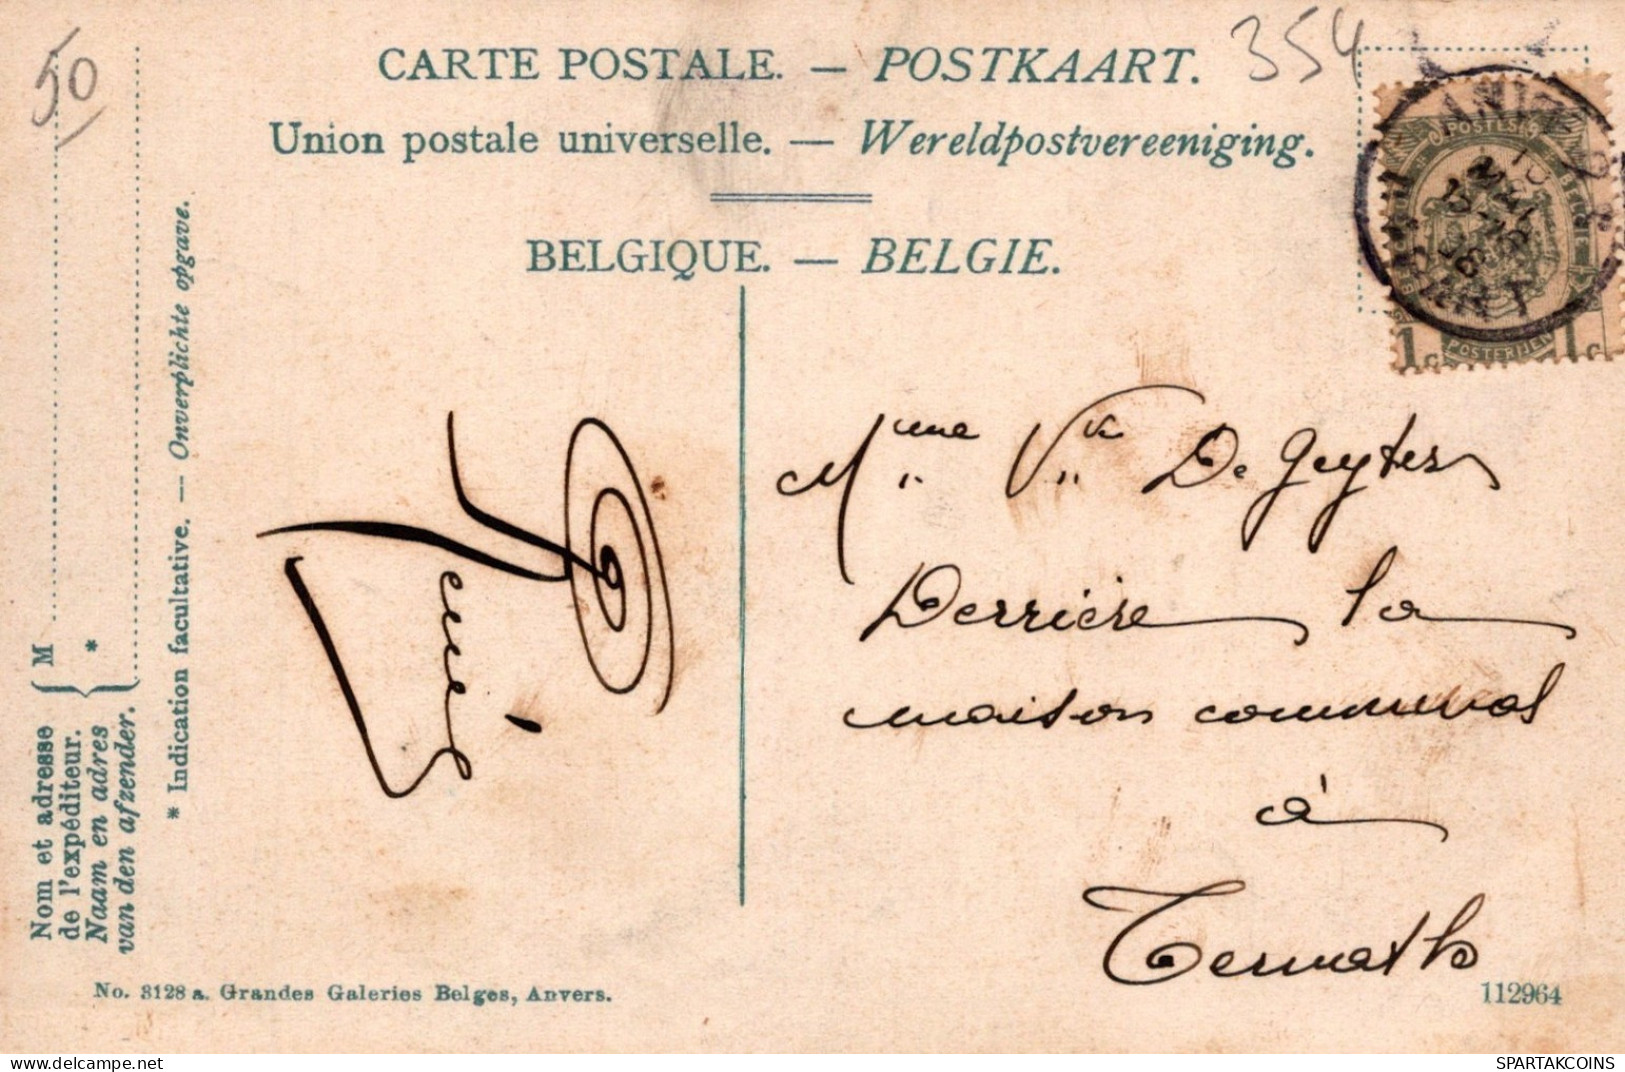 50
CARTE POSTALE. — POSTKAART.
354
Union postale universelle. — Wereldpostvereeniging.
BELGIQUE. — BELGIE.
POSTES
BELGIE
POSTERIJEN
1c 1c
M
*
Nom et adresse
de l'expéditeur.
Naam en adres
van den afzender.
* Indication facultative. — Onverplichte opgave.
Mme Ve De Geyter
Derrière la
maison communal
à
Termath
No. 3128 a. Grandes Galeries Belges, Anvers.
112964
SPARTAKCOINS